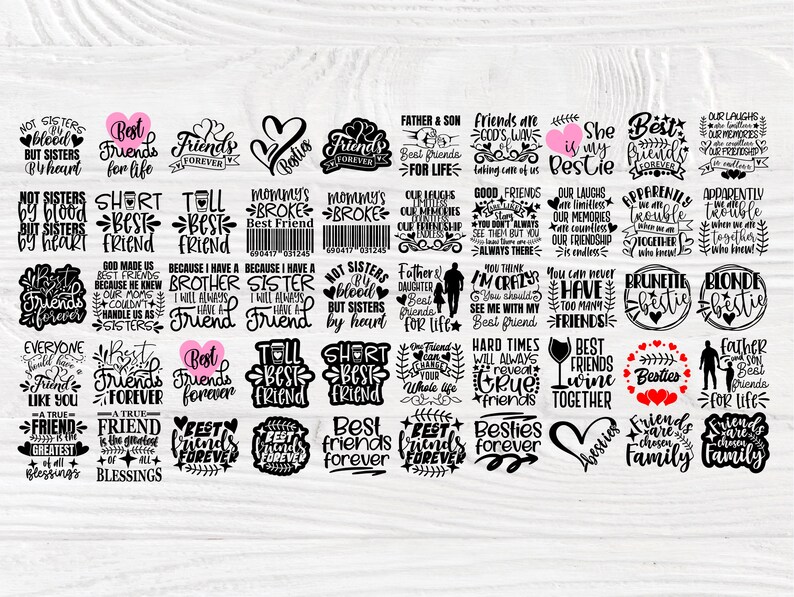 NOT SISTERS
By
blood
BUT SISTERS
By heart
Best
Friends
for life
Friends
FOREVER
Besties
Friends
FOREVER
FATHER & SON
Best friends
FOR LIFE
Friends are
GOD'S WAY
OF
taking care of us
She
is my
Bestie
Best
friends
FOREVER
OUR LAUGHS
are limitless
OUR MEMORIES
are countless
OUR FRIENDSHIP
is endless
NOT SISTERS
by blood
BUT SISTERS
by heart
SHORT
BEST
FRIEND
TALL
BEST
FRIEND
MOMMY'S
BROKE
Best Friend
690417 031245
MOMMY'S
BROKE
690417 031245
OUR LAUGHS
LIMITLESS
OUR MEMORIES
COUNTLESS
OUR FRIENDSHIP
ENDLESS
GOOD FRIENDS
ARE LIKE
Stars
YOU DON'T ALWAYS
SEE THEM BUT YOU
know there are
ALWAYS THERE
OUR LAUGHS
are limitless
OUR MEMORIES
are countless
OUR FRIENDSHIP
is endless
APPARENTLY
we are
trouble
when we are
TOGETHER
who knew!
APPARENTLY
we are
trouble
when we are
together
who knew!
Best
Friends
forever
GOD MADE US
BEST FRIENDS
BECAUSE HE KNEW
OUR MOMS
COULDN'T
HANDLE US AS
SISTERS
BECAUSE I HAVE A
BROTHER
I WILL ALWAYS
HAVE A
Friend
BECAUSE I HAVE A
SISTER
I WILL ALWAYS
HAVE A
Friend
NOT SISTERS
By
blood
BUT SISTERS
by heart
Father &
DAUGHTER
Best
friends
for life
YOU THINK
I'M CRAZY?
You should
SEE ME WITH MY
Best friend
You can never
HAVE
TOO MANY
FRIENDS!
BRUNETTE
bestie
BLONDE
bestie
EVERYONE
should have a
Friend
LIKE YOU
Best
Friends
FOREVER
Best
Friends
forever
TALL
BEST
FRIEND
SHORT
BEST
FRIEND
One Friend
can
CHANGE
YOUR
Whole life
HARD TIMES
WILL ALWAYS
reveal
true
friends
BEST
FRIENDS
wine
TOGETHER
Besties
father
and SON
Best
friends
FOR LIFE
A TRUE
FRIEND
is the
GREATEST
of all
Blessings
A TRUE
FRIEND
is the greatest
OF ALL
BLESSINGS
BEST
friends
FOREVER
BEST
friends
FOREVER
Best
friends
forever
BEST
friends
FOREVER
Besties
forever
besties
Friends
are
chosen
Family
Friends
are
chosen
Family